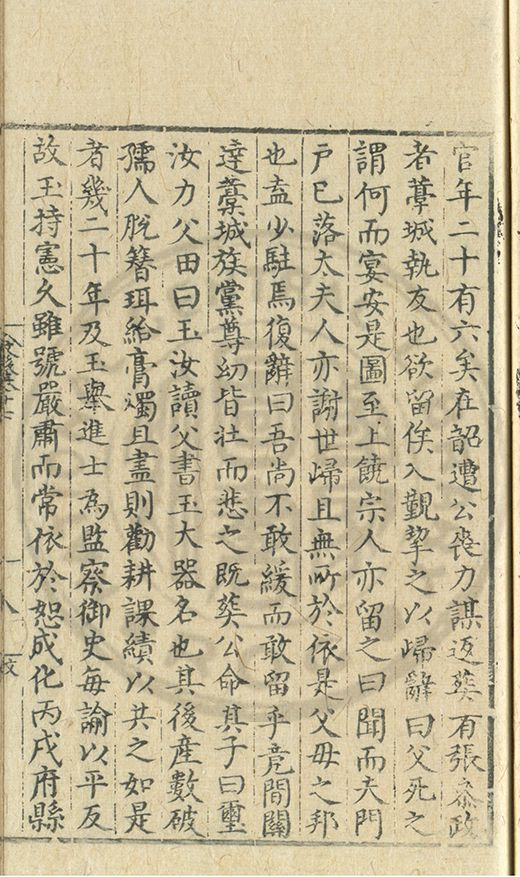 官年二十有六矣在韶遭公喪力謀返葬有張叅政
者藁城執友也欲留俟入覲挈之以歸辭曰父死之
謂何而宴安是圖至上饒宗人亦留之曰聞而夫門
戶已落太夫人亦謝世歸且無所於依是父母之邦
也盍少駐焉復辭曰吾尚不敢緩而敢留乎竟間關
達藁城族黨尊幼皆壯而悲之既葬公命其子曰璽
汝力父田曰玉汝讀父書玉大器名也其後産數破
孺人脫簪珥給膏燭且盡則勸耕課績以共之如是
者幾二十年及玉舉進士為監察御史每論以平反
故玉持憲久雖號嚴肅而常依於恕成化丙戌府縣